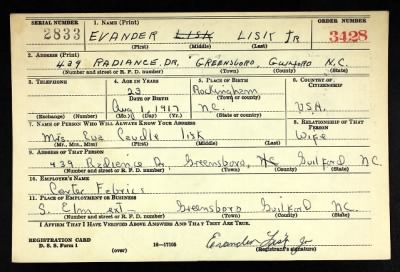 SERIAL NUMBER 1. NAME (Print) ORDER NUMBER
2833 EVANDER LISK LISK JR 3428
(First) (Middle) (Last)
2. ADDRESS (Print)
439 RADIANCE DR. GREENSBORO, GUILFORD N.C.
(Number and street or R. F. D. number) (Town) (County) (State)
3. TELEPHONE 4. AGE IN YEARS 5. PLACE OF BIRTH 6. COUNTRY OF CITIZENSHIP
23 Rockingham
DATE OF BIRTH (Town or county)
Aug 1, 1917 N.C. USA.
(Exchange) (Number) (Mo.) (Day) (Yr.) (State or country)
7. NAME OF PERSON WHO WILL ALWAYS KNOW YOUR ADDRESS 8. RELATIONSHIP OF THAT PERSON
Mrs. Eva Caudle Lisk Wife
(Mr., Mrs., Miss) (First) (Middle) (Last)
9. ADDRESS OF THAT PERSON
439 Radience Dr, Greensboro, NC Guilford NC.
(Number and street or R. F. D. number) (Town) (County) (State)
10. EMPLOYER'S NAME
Carter Fabrics
11. PLACE OF EMPLOYMENT OR BUSINESS
S. Elm ext- Greensboro Guilford NC.
(Number and street or R. F. D. number) (Town) (County) (State)
I AFFIRM THAT I HAVE VERIFIED ABOVE ANSWERS AND THAT THEY ARE TRUE.
REGISTRATION CARD
D. S. S. Form 1 (over) 16-17105 Evander Lisk Jr
(Registrant's signature)